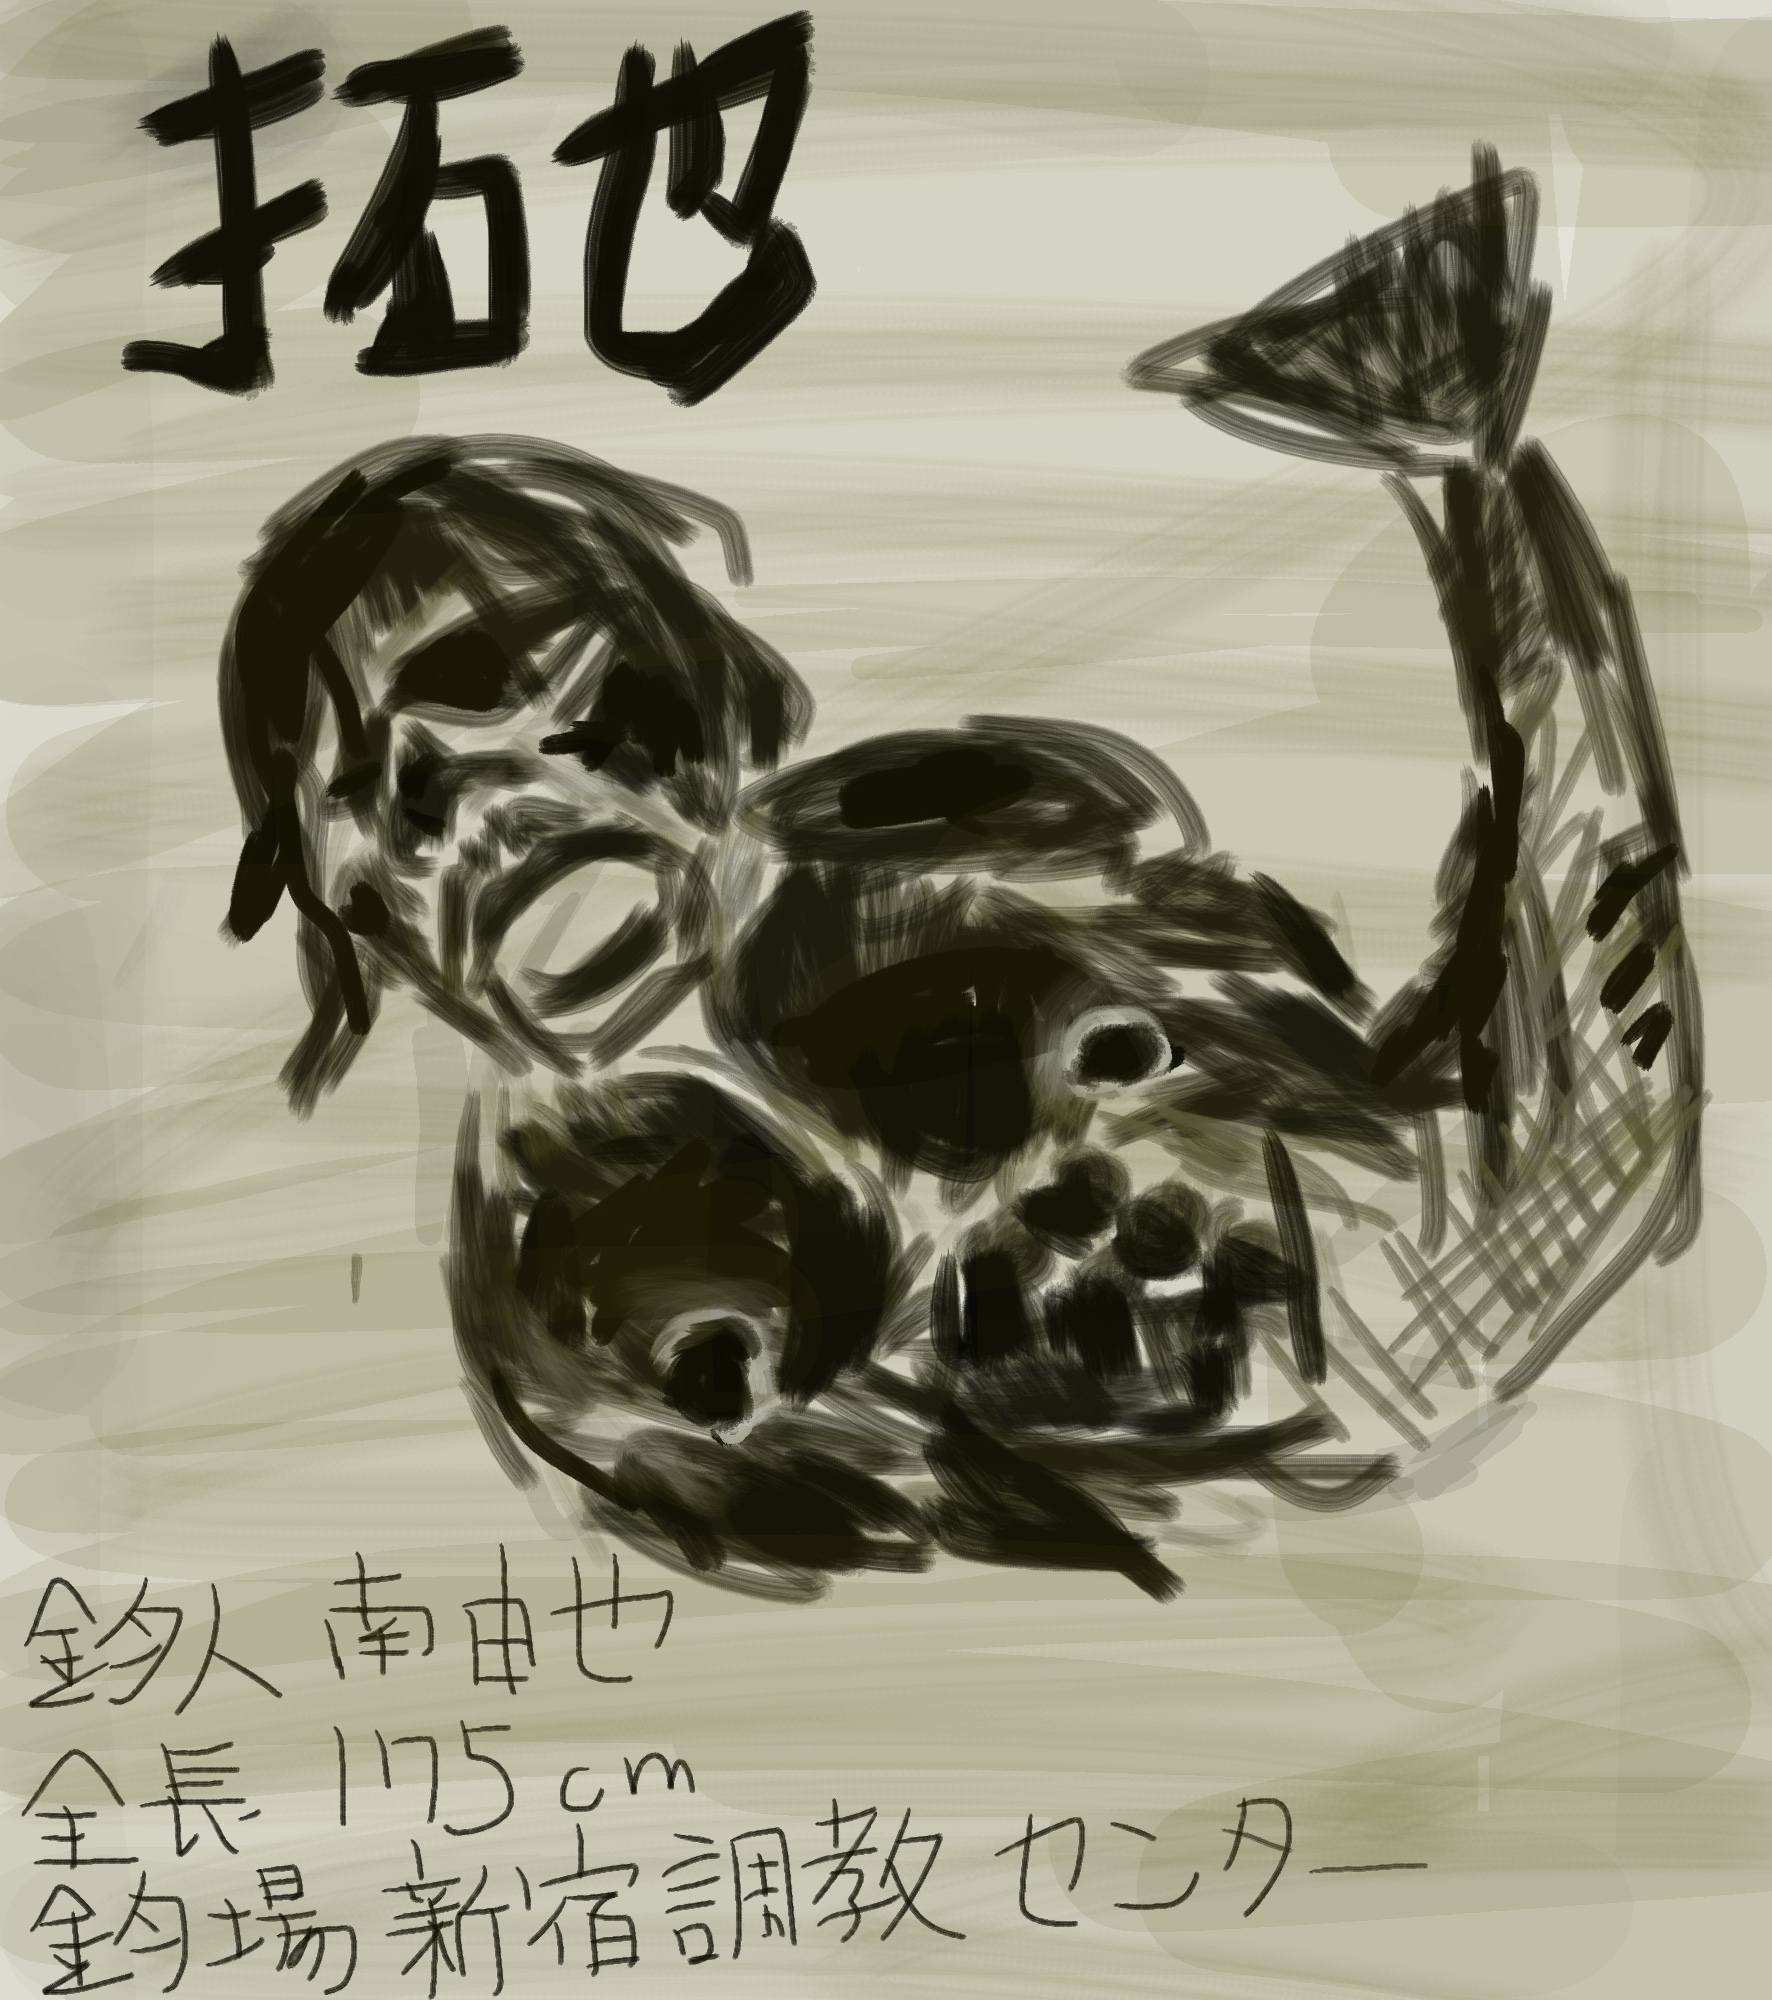 拓也
釣人 南由也
全長 175cm
釣場 新宿調教センター